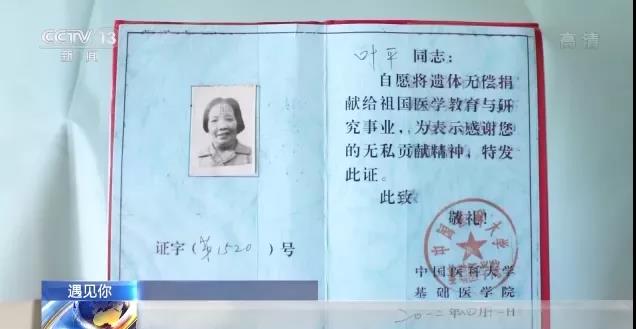 CCTV 13
新闻
高清
叶平 同志：
自愿将遗体无偿捐
献给祖国医学教育与研
究事业，为表示感谢您
的无私贡献精神，特发
此证。
此致
敬礼！
中国医科大学
中国医科大学
基础医学院
证字（第1520）号
遇见你